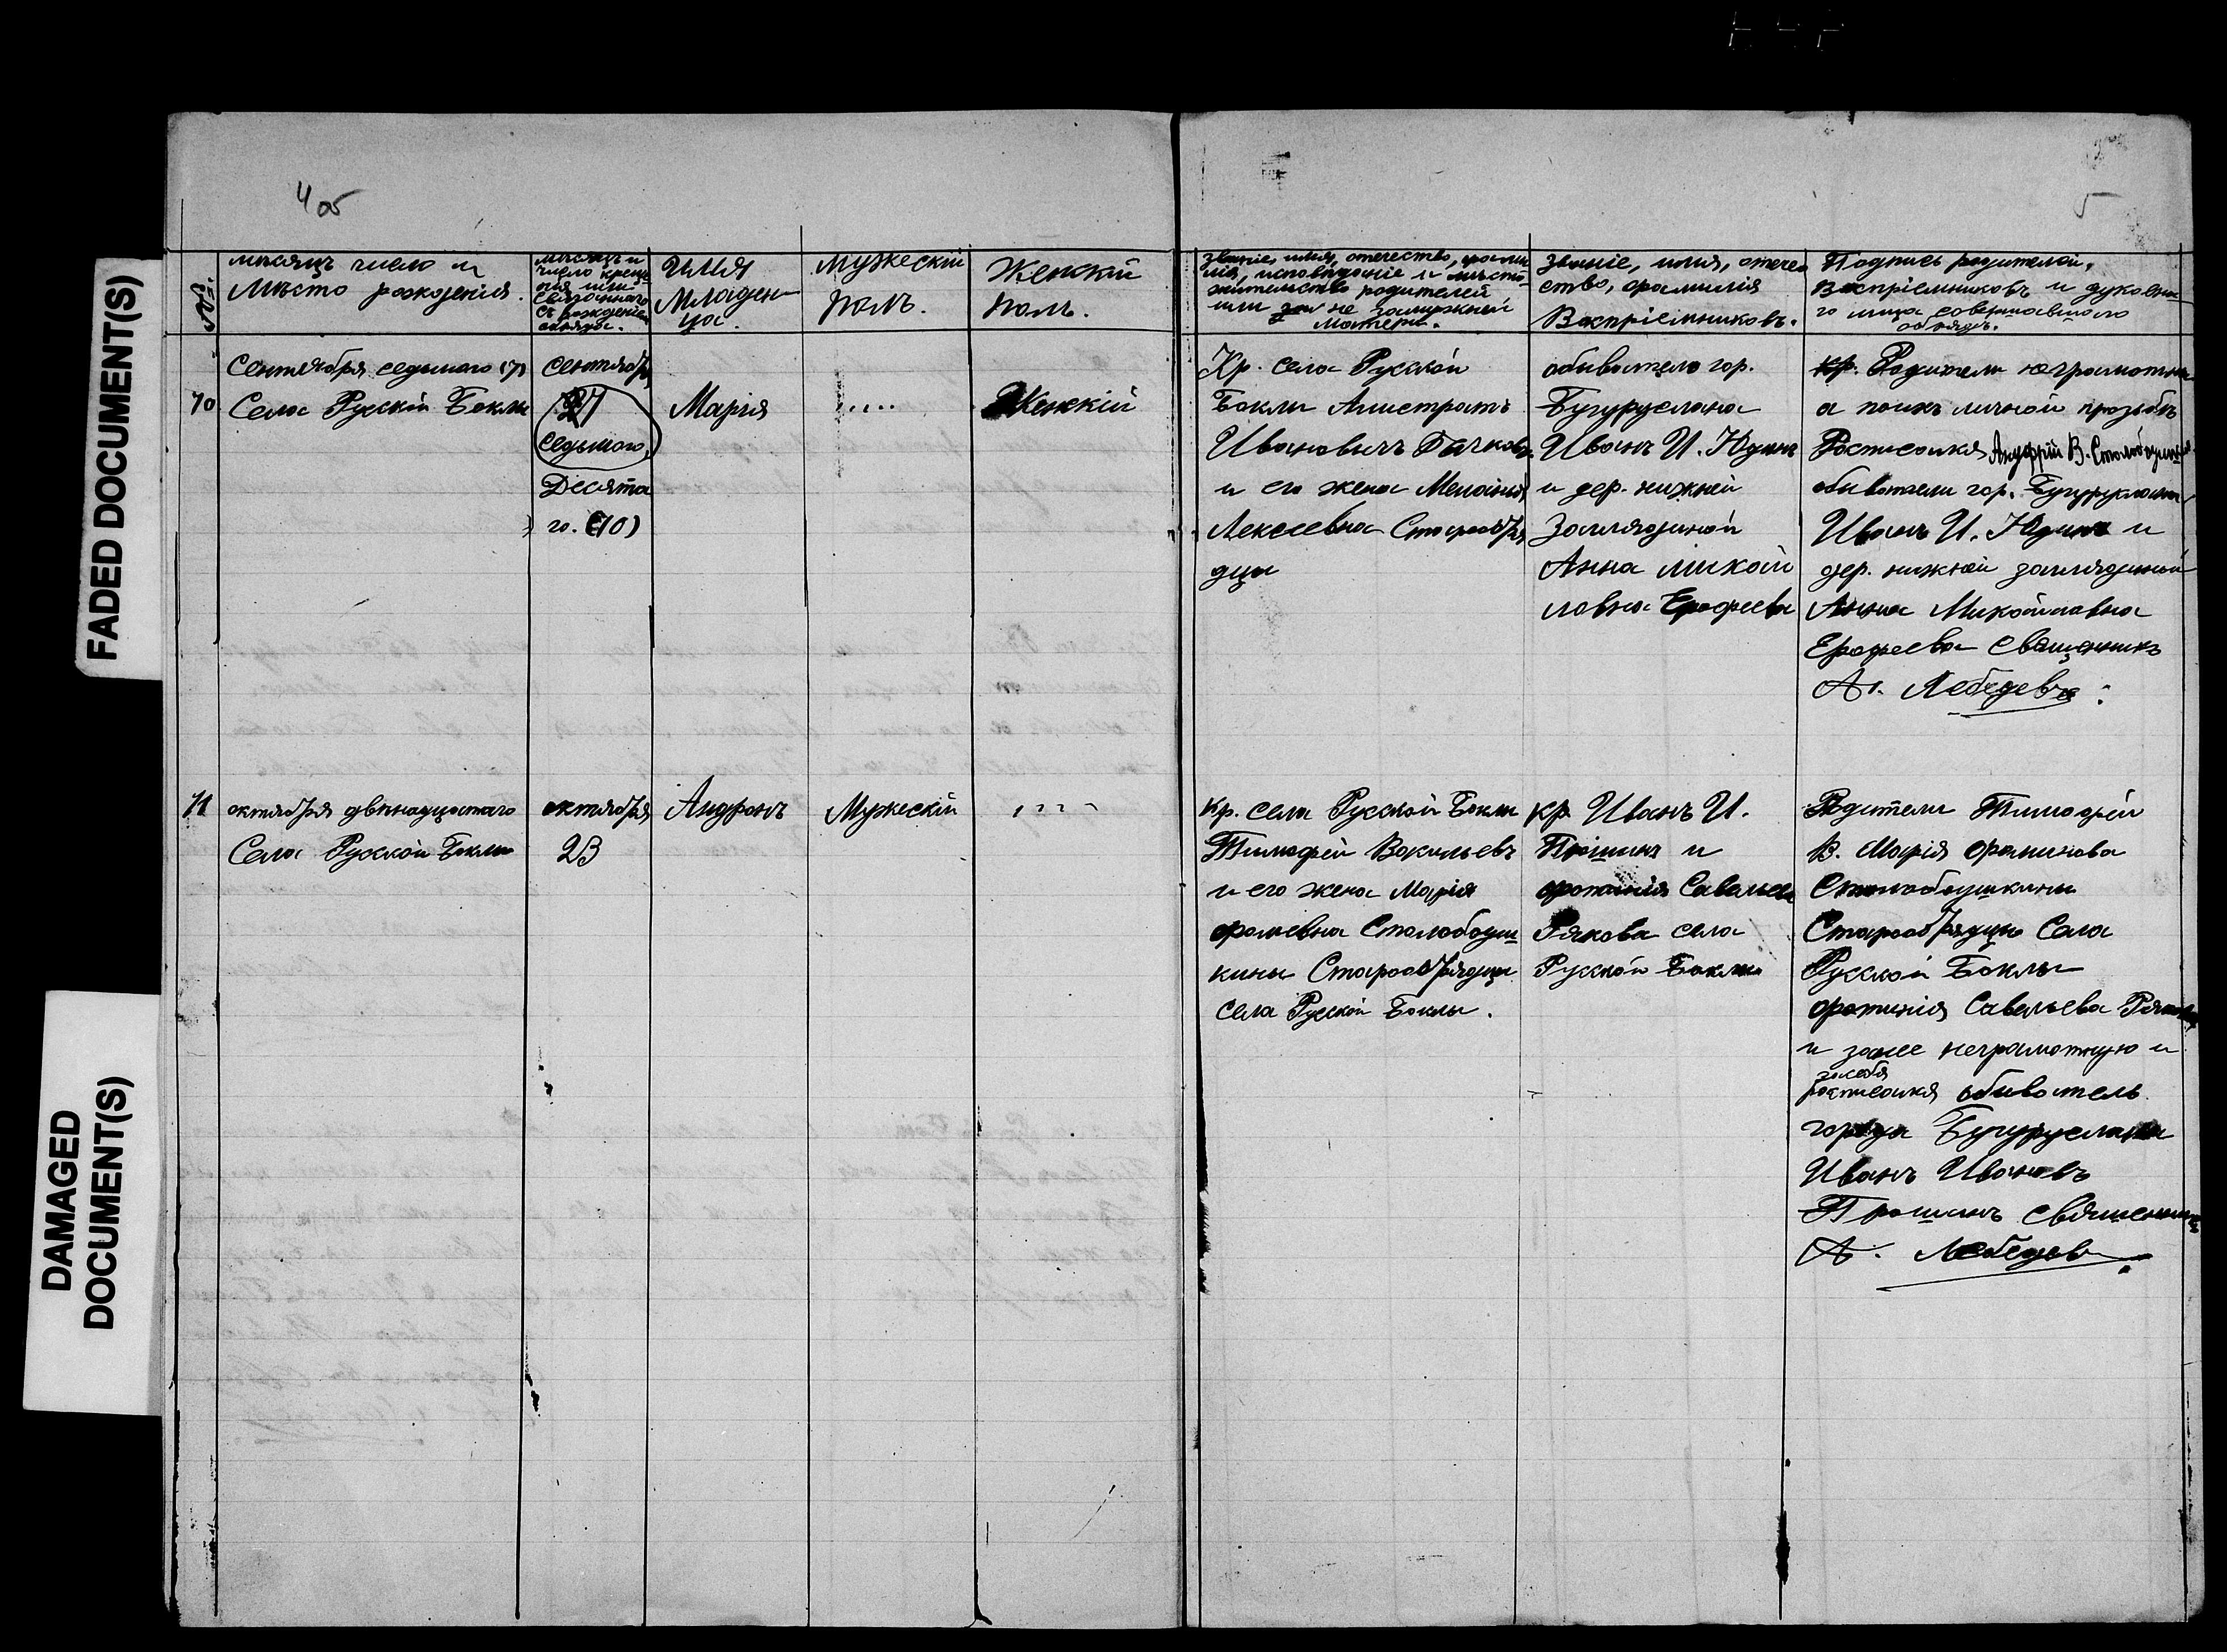 FADED DOCUMENT(S)
DAMAGED
DOCUMENT(S)
4 об
5
№
мѣсяцъ число и
мѣсто рожденія.
мѣсяцъ и
число креще
нія или
связаннаго
съ рожденіем
обряда.
имя
младен
ца.
мужескій
полъ.
Женскій
полъ.
Званіе, имя, отечество, фамилія
лія, исповѣданіе и мѣсто
жительство родителей
или не замужней
матери.
Званіе, имя, отече
ство, фамилія
Воспріемниковъ.
Подпись родителей,
Воспріемниковъ и духовна
го лица совершавшаго
обрядъ.
10
Сентября седьмого (7)
Села Русской Боклы
Сентября
седьмого
Десята
го. (10)
Марія
Женскій
Кр. села Русской
Боклы Алистратъ
Ивановичъ
и его жена Меланья
Лексеевна Старообря
дцы
обыватель гор.
Бугуруслана
Иванъ И. Юдинъ
и дер. нижней
Заглядиной
Анна Микой
ловна Ерофеева
кр. Родители неграмотны
а поихъ личной прозьбѣ
Росписался Ануфрій В. Столобоушкинъ
обыватели гор. Бугуруслана
Иванъ И. Юдинъ и
дер. нижней заглядиной
Анна Микойловна
Ерофеева Священникъ
А. Лебедевъ
11
октября двенадцатаго
Села Русской Боклы
октября
23
Андронъ
Мужескій
Кр. села Русской Боклы
Тимофей Васильевъ
и его жена Марія
фомевна Столобоуш
кины Старообрядцы
села Русской Боклы.
кр Иванъ И.
и
фотинія Савельева
Рякова села
Русской Боклы
Родители Тимофей
В. Марія фоминова
Столобоушкины
Старообрядцы Села
Русской Боклы
фотинія Савельева Рякова
и занее неграмотную и
засебя
росписался обыватель
города Бугуруслана
Иванъ Ивановъ
священникъ
А. Лебедев